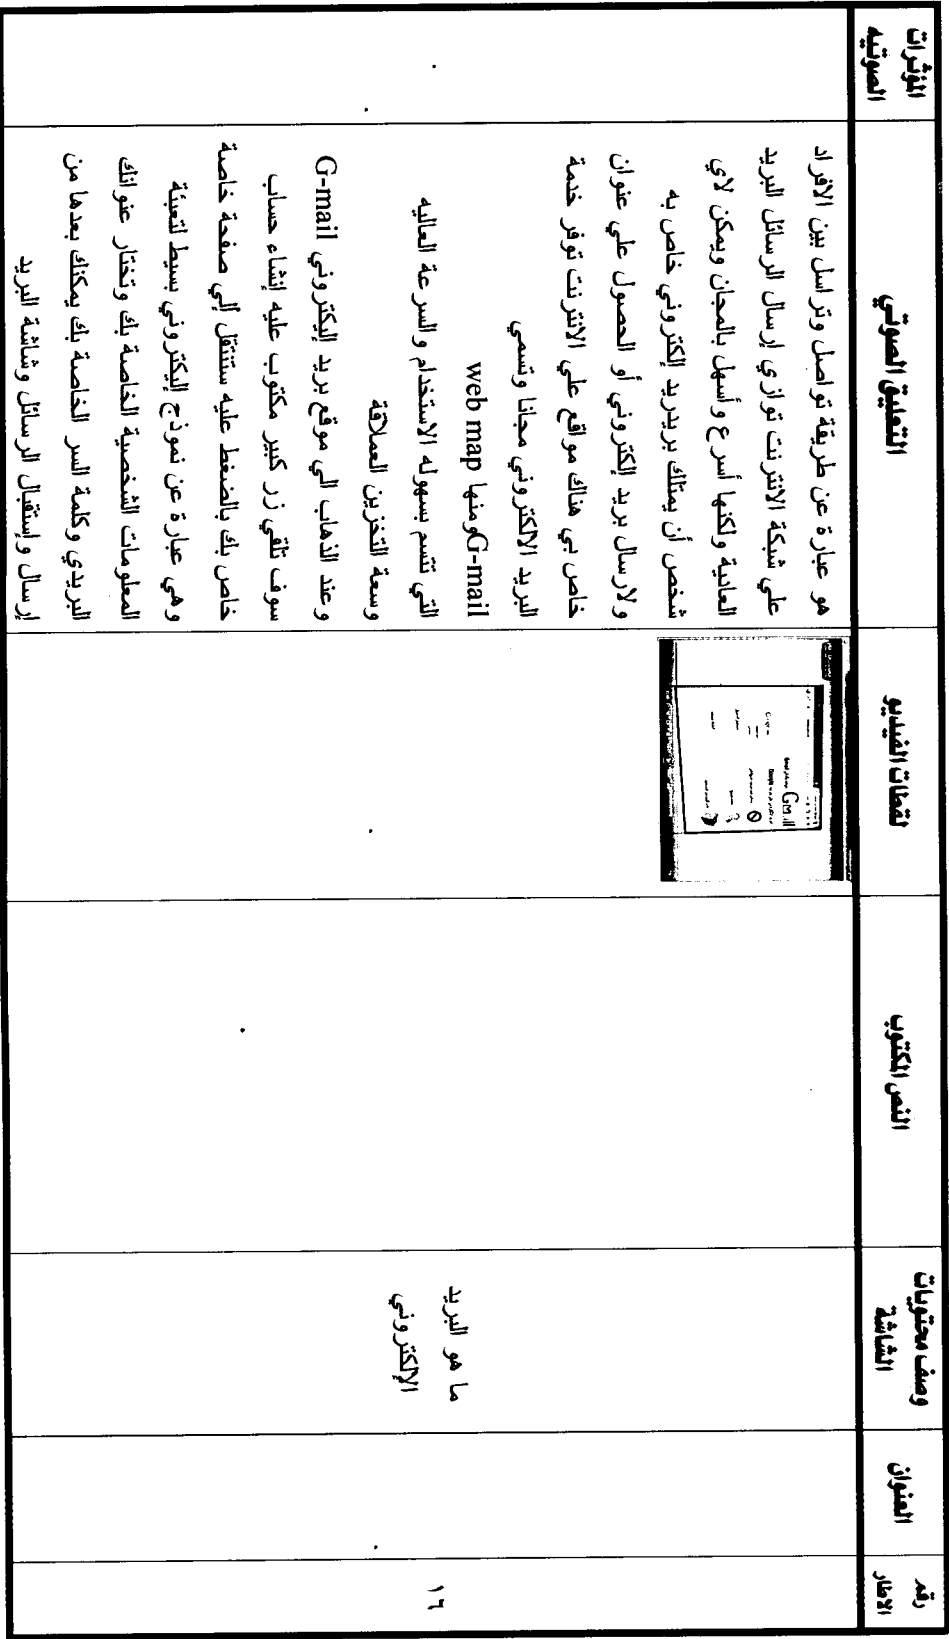 رقم الاطار
العنوان
وصف محتويات الشاشة
النص المكتوب
لقطات الفيديو
التعليق الصوتي
المؤثرات الصوتيه
١٦
ما هو البريد
الإلكتروني
Gmail
هو عبارة عن طريقة تواصل وتراسل بين الافراد
علي شبكة الانترنت توازي إرسال الرسائل البريد
العادية ولكنها أسرع وأسهل بالمجان ويمكن لاي
شخص أن يمتلك بريدريد إلكتروني خاص به
ولارسال بريد إلكتروني أو الحصول علي عنوان
خاص بي هناك مواقع علي الانترنت توفر خدمة
البريد الالكتروني مجانا وتسمي
web map ومنهاG-mail
التي تتسم بسهوله الاستخدام والسرعة العاليه
وسعة التخزين العملاقة
وعند الذهاب الي موقع بريد إليكتروني G-mail
سوف تلقي زر كبير مكتوب عليه إنشاء حساب
خاص بك بالضغط عليه ستنتقل إلي صفحة خاصة
وهي عبارة عن نموذج إليكتروني بسيط لتعبئة
المعلومات الشخصية الخاصة بك وتختار عنوانك
البريدي وكلمة السر الخاصة بك يمكنك بعدها من
إرسال وإستقبال الرسائل وشاشة البريد